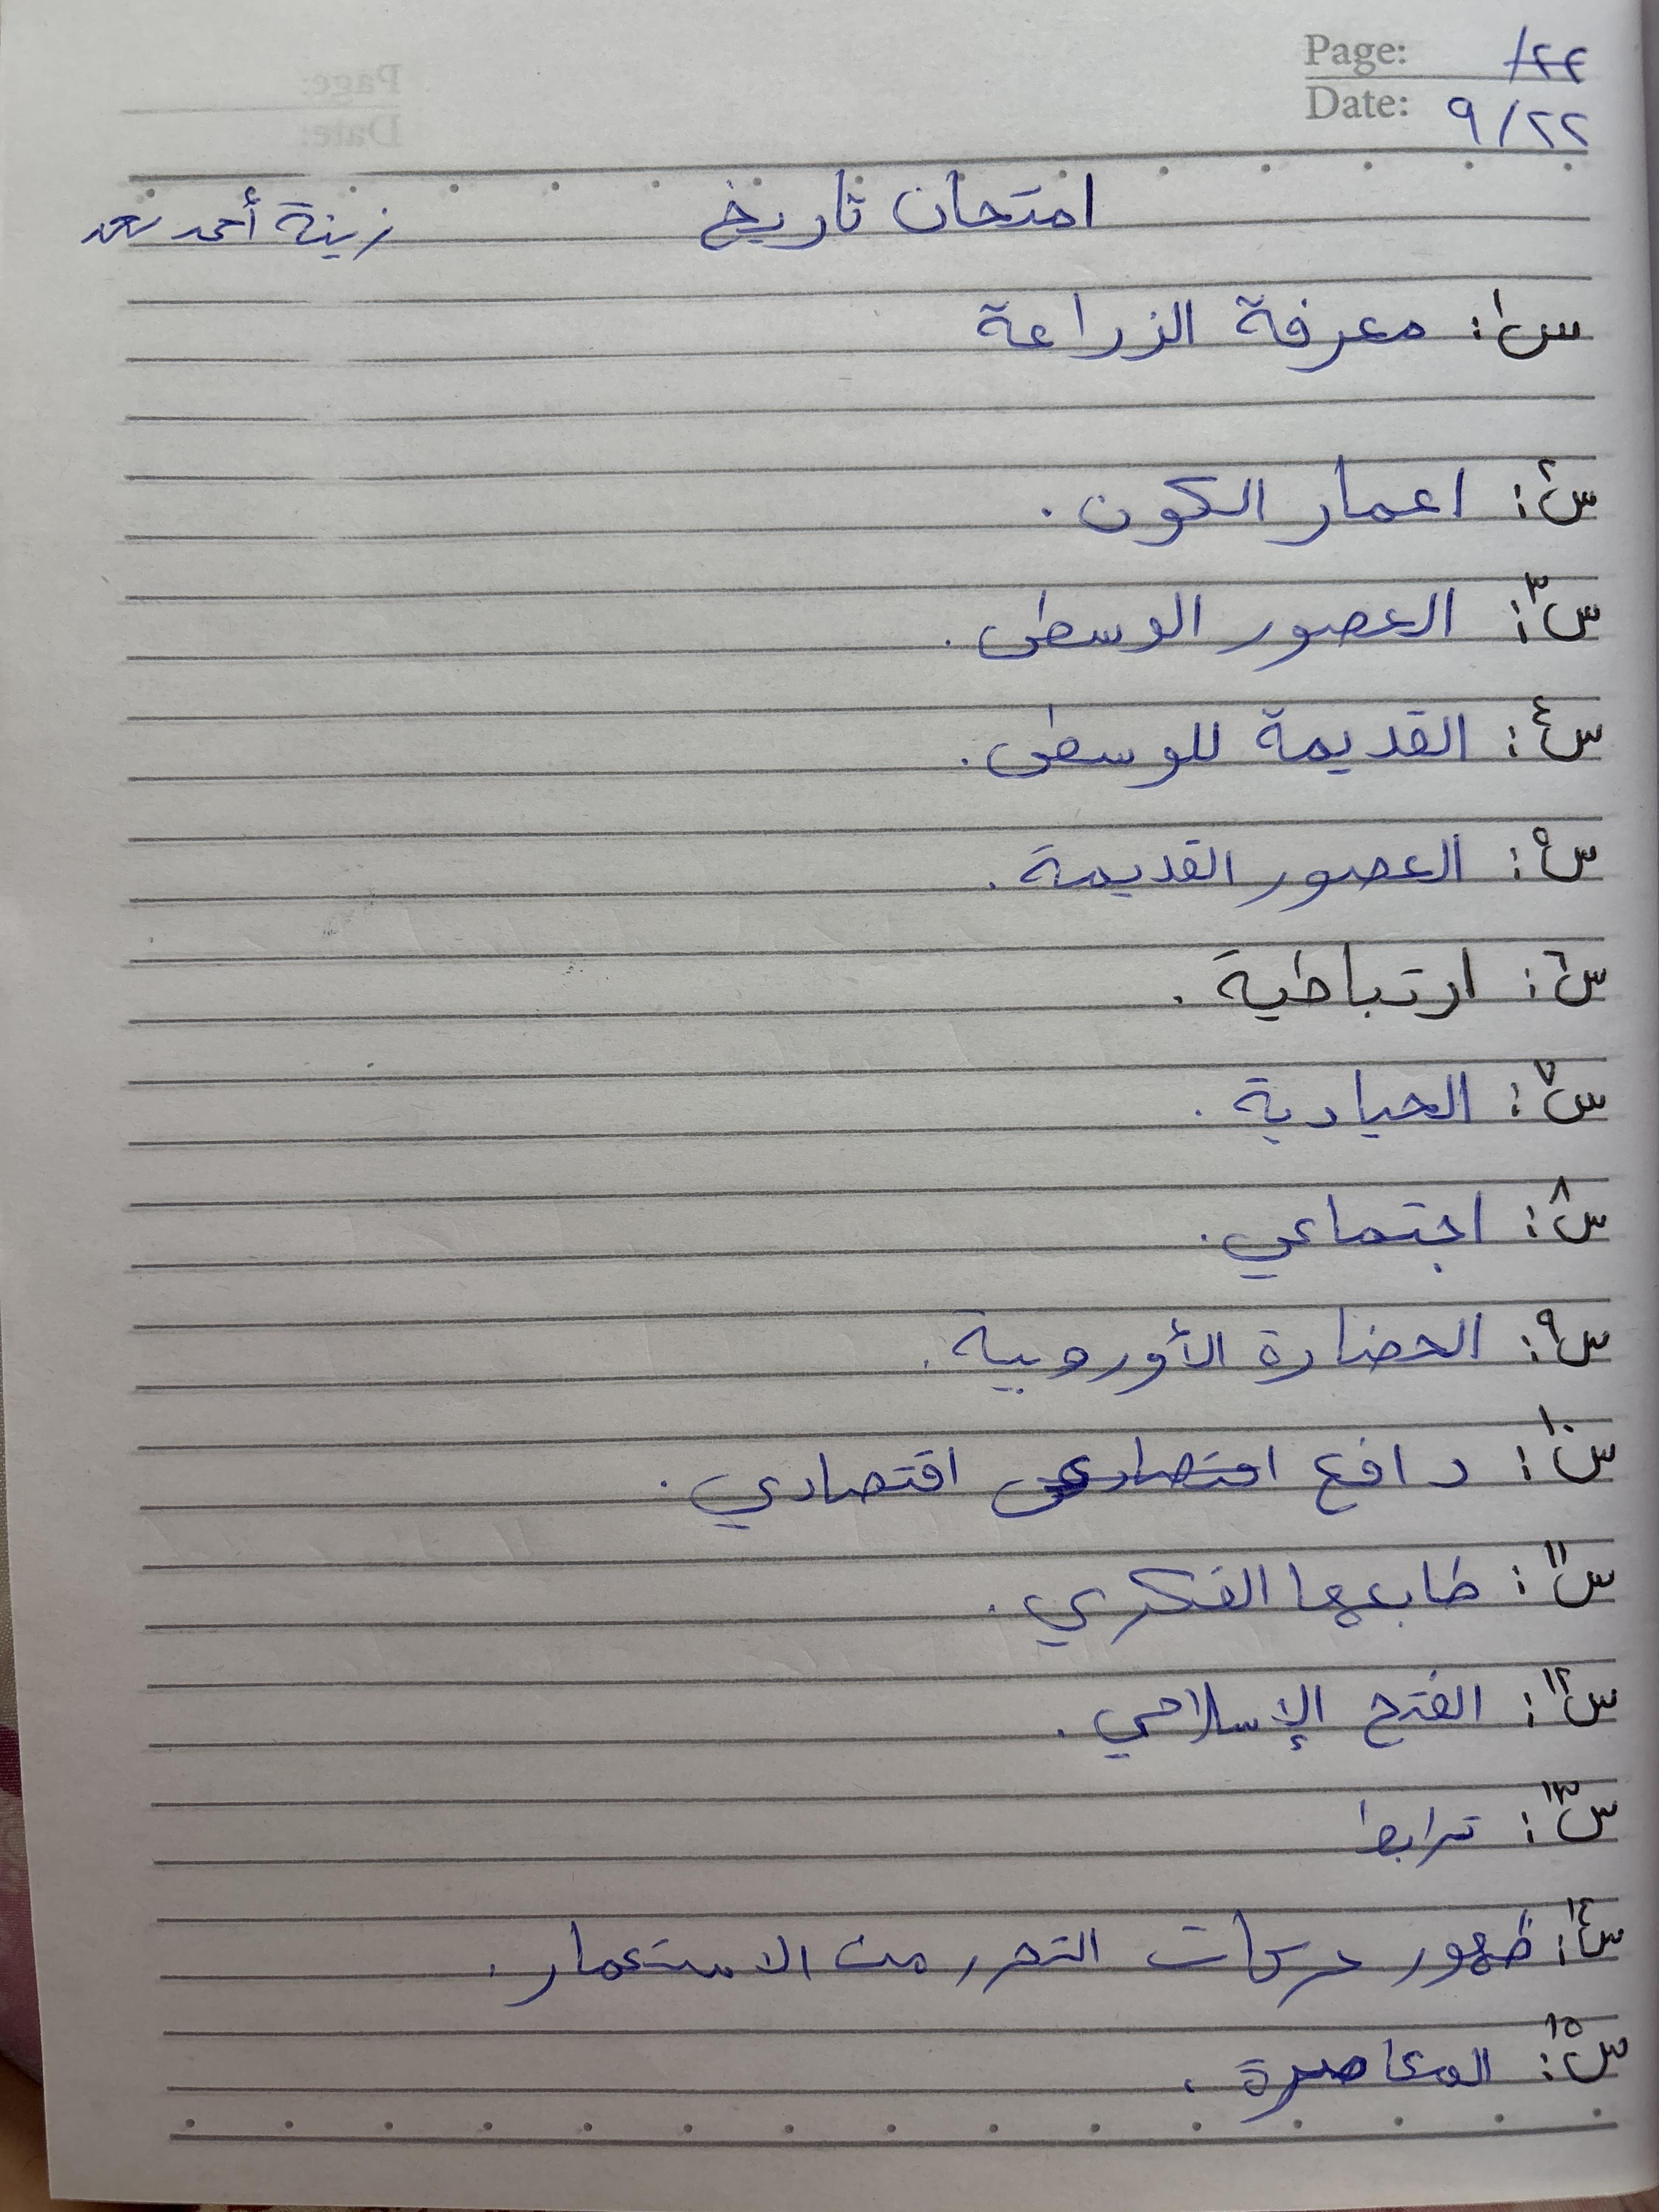 Page:
Date: ٢٢/٩
امتحان تاريخ
زينة أحمد سعد
س١: معرفة الزراعة
س٢: اعمار الكون.
س٣: العصور الوسطى.
س٤: القديمة للوسطى.
س٥: العصور القديمة.
س٦: ارتباطية.
س٧: الحيادية.
س٨: اجتماعي.
س٩: الحضارة الأوروبية.
س١٠: دافع اقتصادي.
س١١: طابعها الفكري.
س١٢: الفتح الإسلامي.
س١٣: ترابط
س١٤: ظهور حركات التحرر من الاستعمار.
س١٥: المعاصرة.